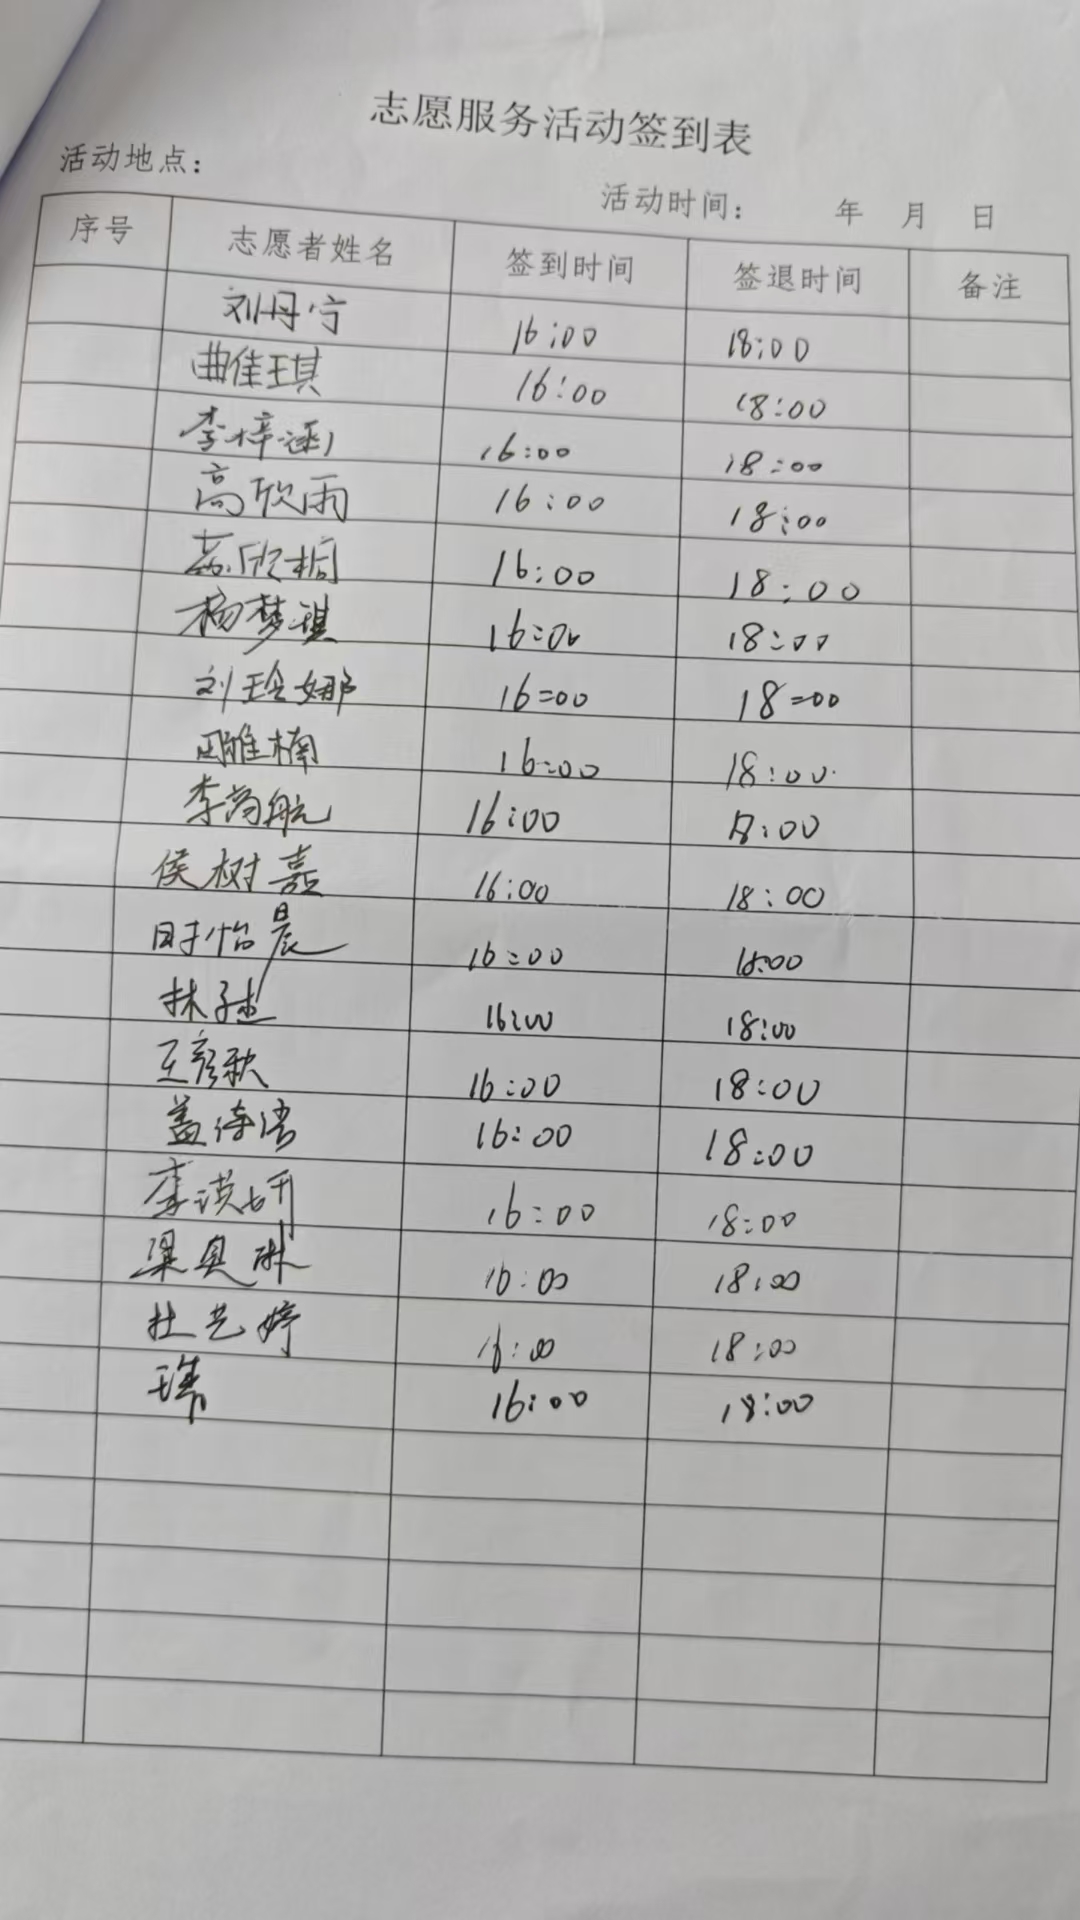 志愿服务活动签到表
活动地点：
活动时间： 年 月 日
序号 志愿者姓名 签到时间 签退时间 备注
刘丹宁 16:00 18:00
曲佳琪 16:00 18:00
李梓涵 16:00 18:00
高欣雨 16:00 18:00
16:00 18:00
杨梦琪 16:00 18:00
刘玲娜 16:00 18:00
雅楠 16:00 18:00
李尚航 16:00 18:00
侯树嘉 16:00 18:00
时怡晨 16:00 18:00
林子 16:00 18:00
王彦秋 16:00 18:00
盖 16:00 18:00
李 16:00 18:00
梁奥琳 16:00 18:00
杜艺婷 16:00 18:00
16:00 18:00